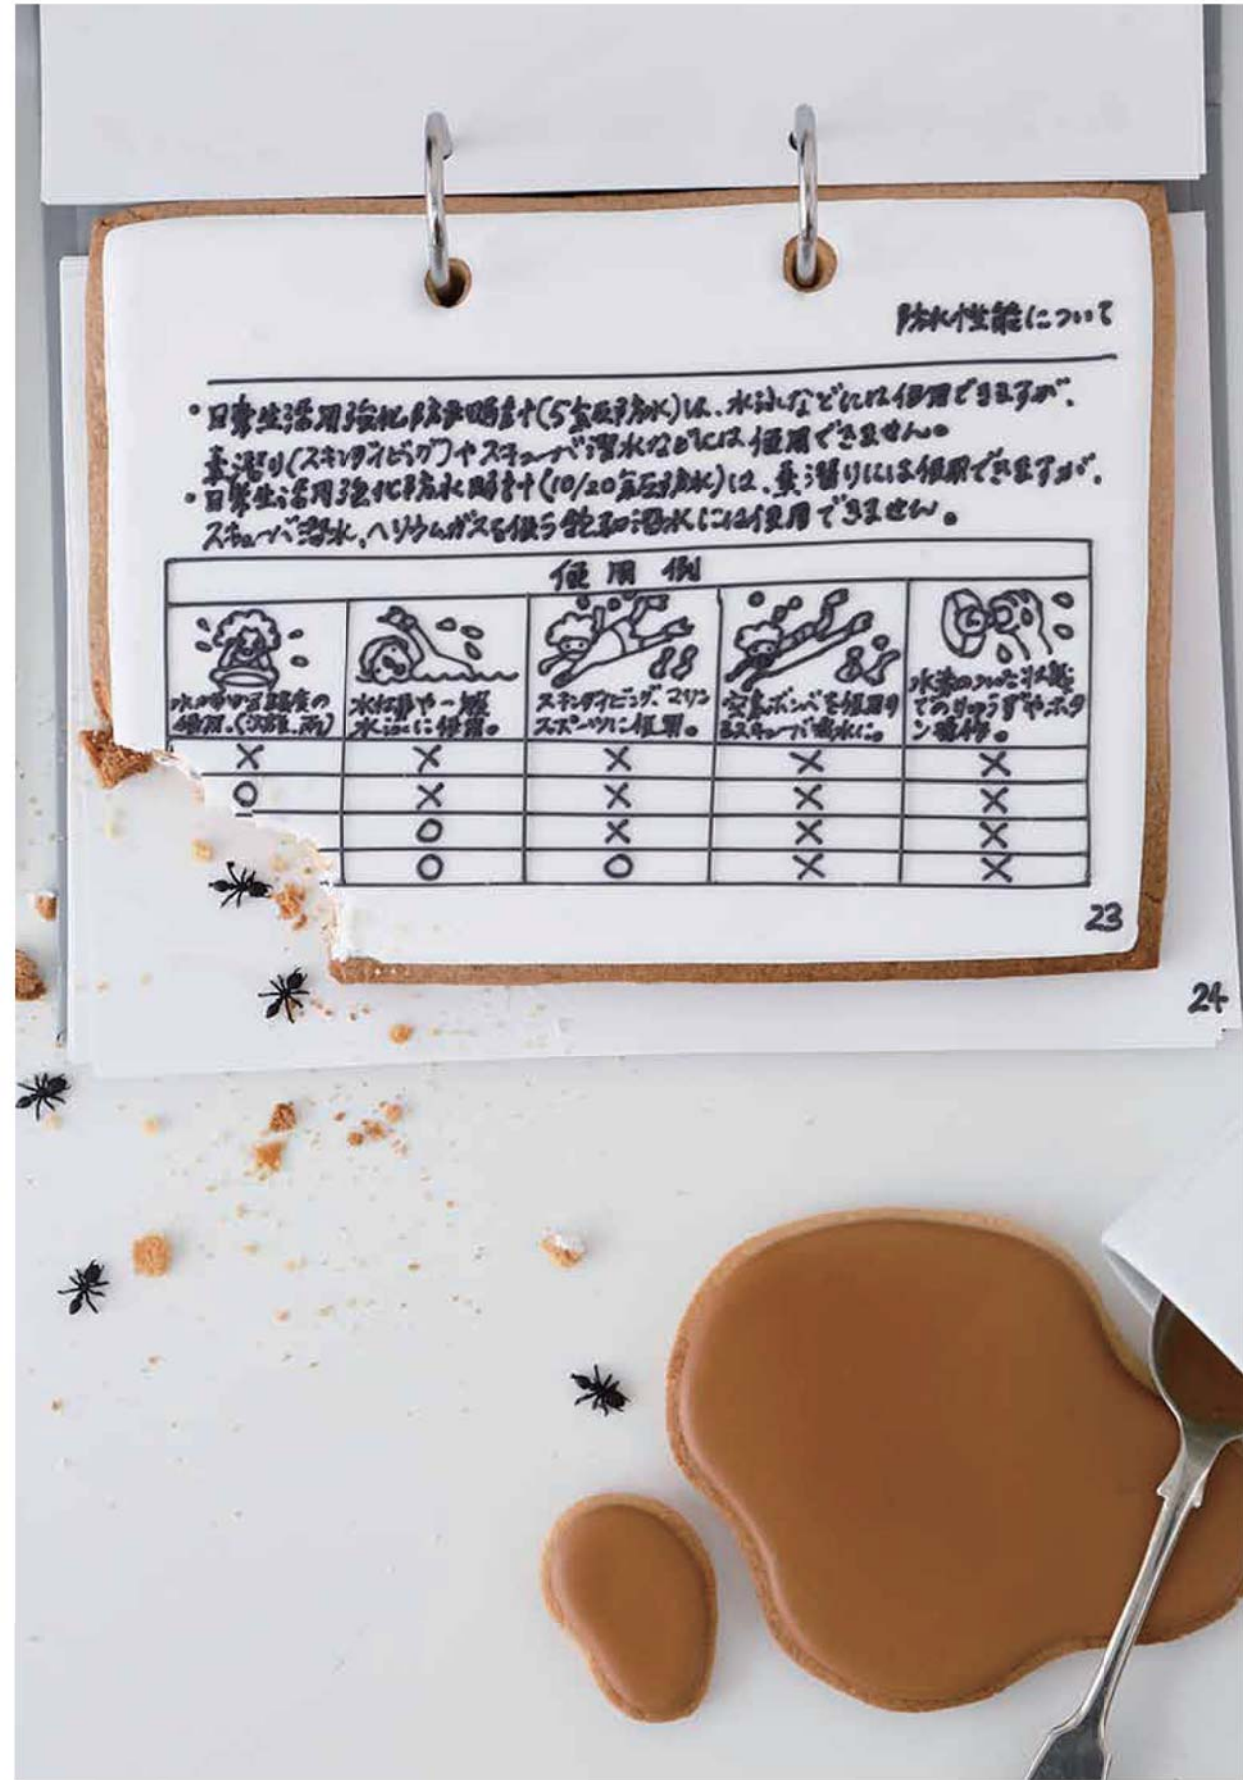 防水性能について
・日常生活用強化防水時計(5気圧防水)は、水泳などには使用できますが、
素潜り(スキンダイビング)やスキューバ潜水などには使用できません。
・日常生活用強化防水時計(10/20気圧防水)は、素潜りには使用できますが、
スキューバ潜水、ヘリウムガスを使う飽和潜水には使用できません。
使用例
水がかかる程度の
使用。(洗顔、雨)
水仕事や一般
水泳に使用。
スキンダイビング、マリン
スポーツに使用。
空気ボンベを使用す
るスキューバ潜水に。
水滴のついた状態
でのりゅうずやボタ
ン操作。
× × × × ×
○ × × × ×
○ × × ×
○ ○ × ×
23
24